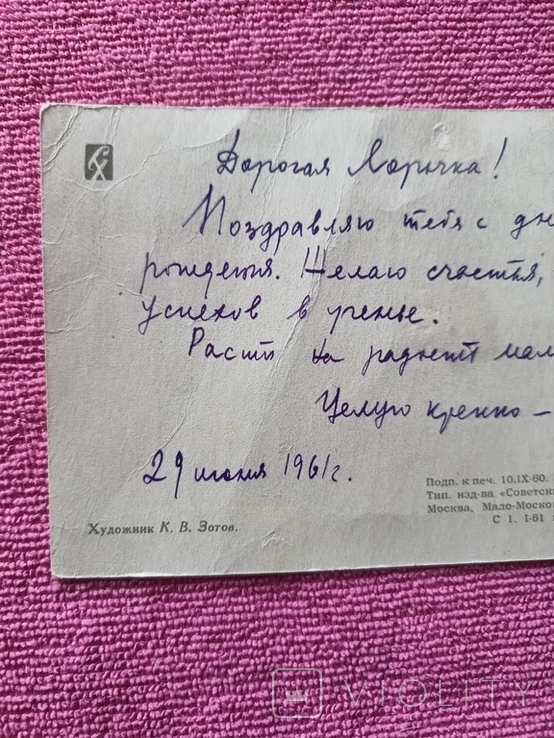 Дорогая Ларочка!
Поздравляю тебя с дн
рождения. Желаю счастья,
успехов в ученье.
Расти на радость мам
Целую крепко —
29 июня 1961г.
Подп. к печ. 10.IX-60.
Тип. изд-ва «Советски
Москва, Мало-Москов
С 1. I-61
Художник К. В. Зотов.
VIOLITY